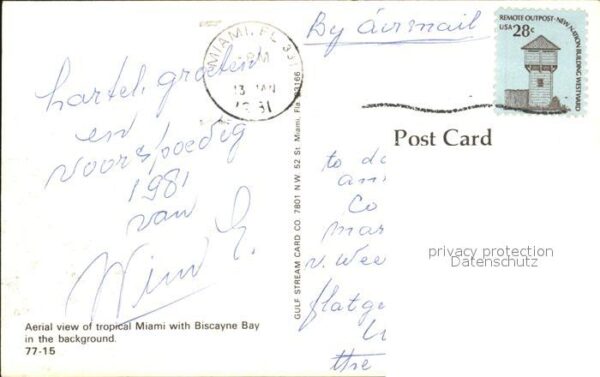 By airmail
MIAMI, FL 331
PM
13 JAN
1981
REMOTE OUTPOST · NEW NATION BUILDING WESTWARD
USA 28c
hartel. groeten
en
voorspoedig
1981
van
Wim E.
Post Card
to
Co
v. Wee
flatg
the
privacy protection
Datenschutz
GULF STREAM CARD CO. 7801 N.W. 52 St. Miami, Fla. 33166
Aerial view of tropical Miami with Biscayne Bay
in the background.
77-15